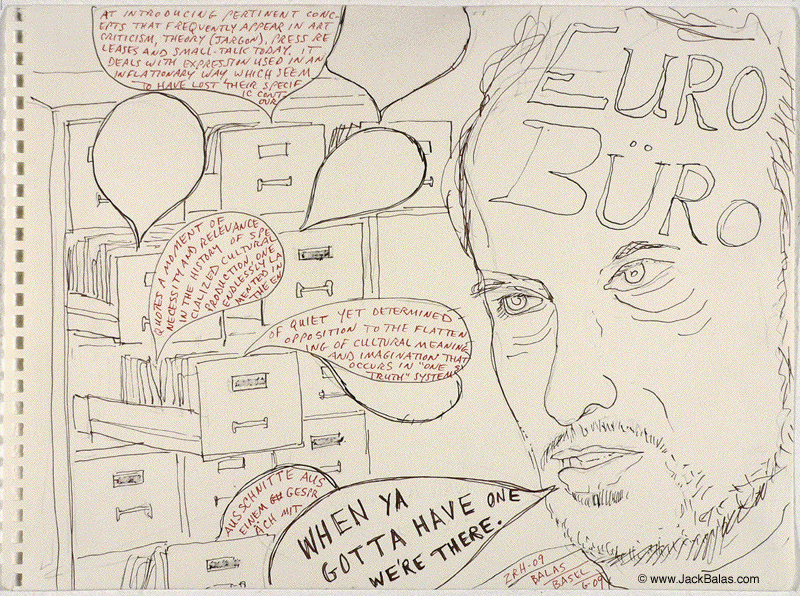 AT INTRODUCING PERTINENT CONC-
EPTS THAT FREQUENTLY APPEAR IN ART
CRITICISM, THEORY (JARGON), PRESS RE
LEASES AND SMALL-TALK TODAY. IT
DEALS WITH EXPRESSIN USED IN AN
INFLATIONARY WAY, WHICH SEEM
TO HAVE LOST THEIR SPECIF
IC CONT
OUR
EURO
BÜRO
QUOTES A MOMENT OF
NECESSITY AND RELEVANCE
IN THE HISTORY OF SPE
CIALIZED CULTURAL
PRODUCTION, ONE
ENDLESSLY LA
MENTED IN
THE EN
OF QUIET YET DETERMINED
OPPOSITION TO THE FLATTEN
ING OF CULTURAL MEANING
AND IMAGINATION THAT
OCCURS IN "ONE
TRUTH" SYSTEMS
AUSSCHNITTE AUS
EINEM GESPR
ÄCH MIT
WHEN YA
GOTTA HAVE ONE
WE'RE THERE.
ZRH-09
BALAS
BASEL
G-09
© www.JackBalas.com